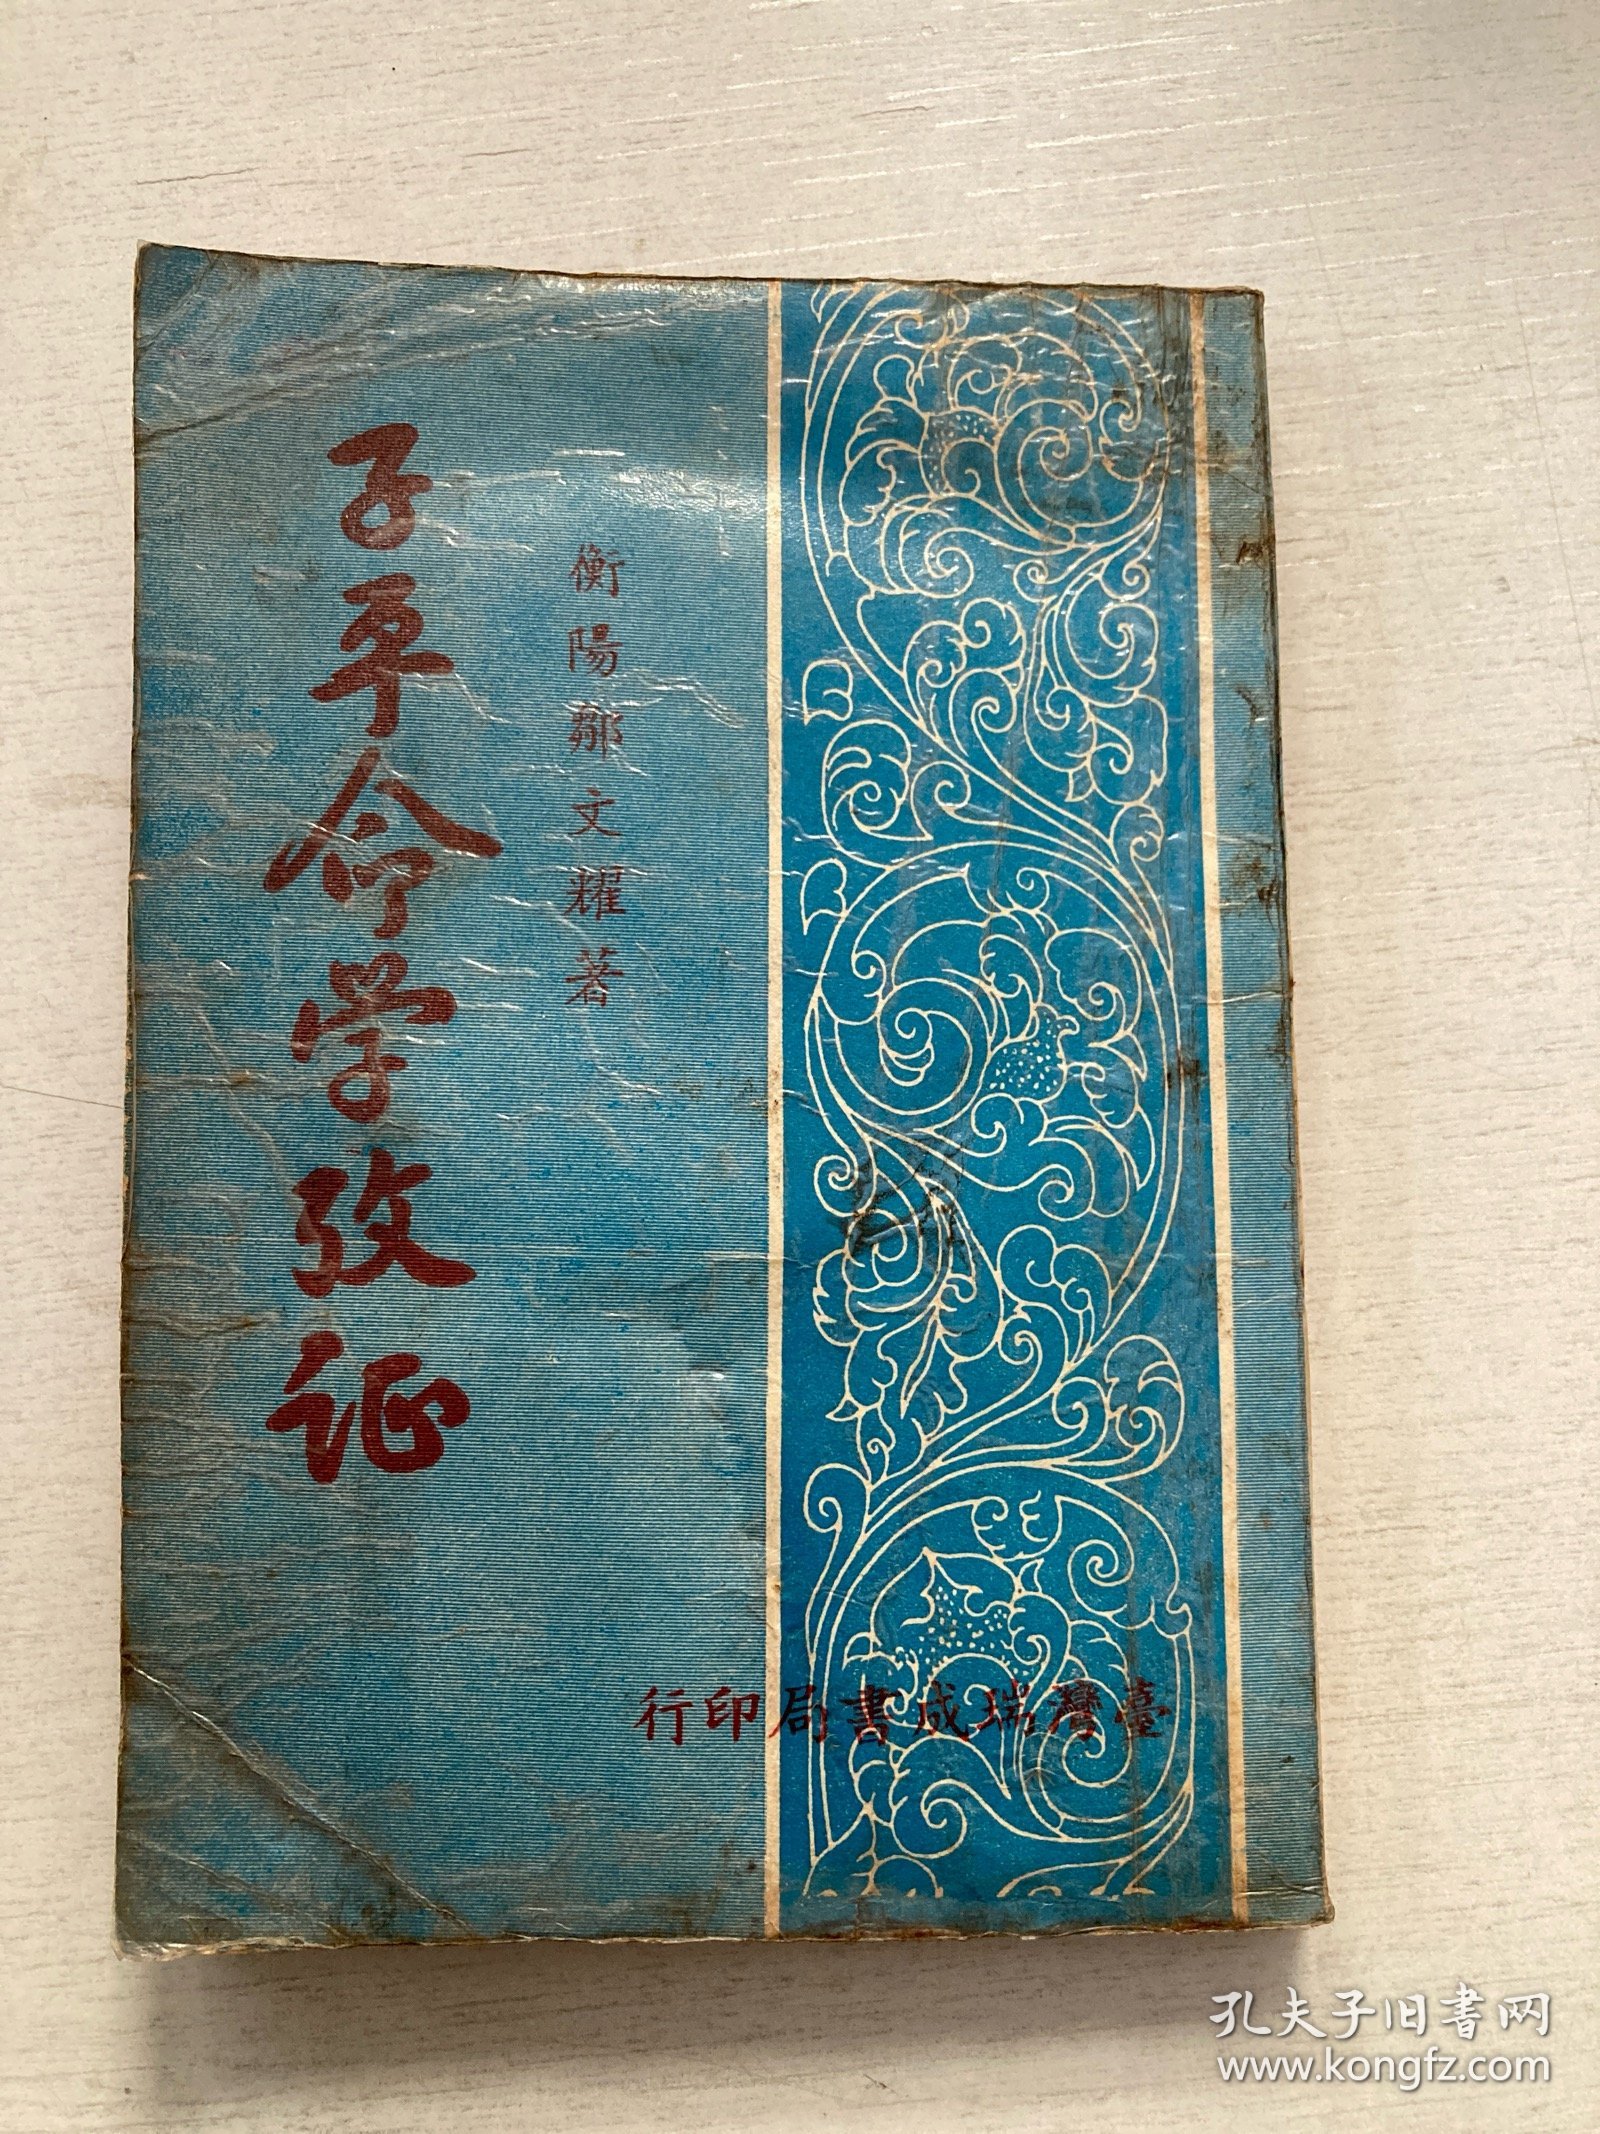 子平命学攷证
衡陽鄒文耀著
臺灣瑞成書局印行
孔夫子旧書网
www.kongfz.com